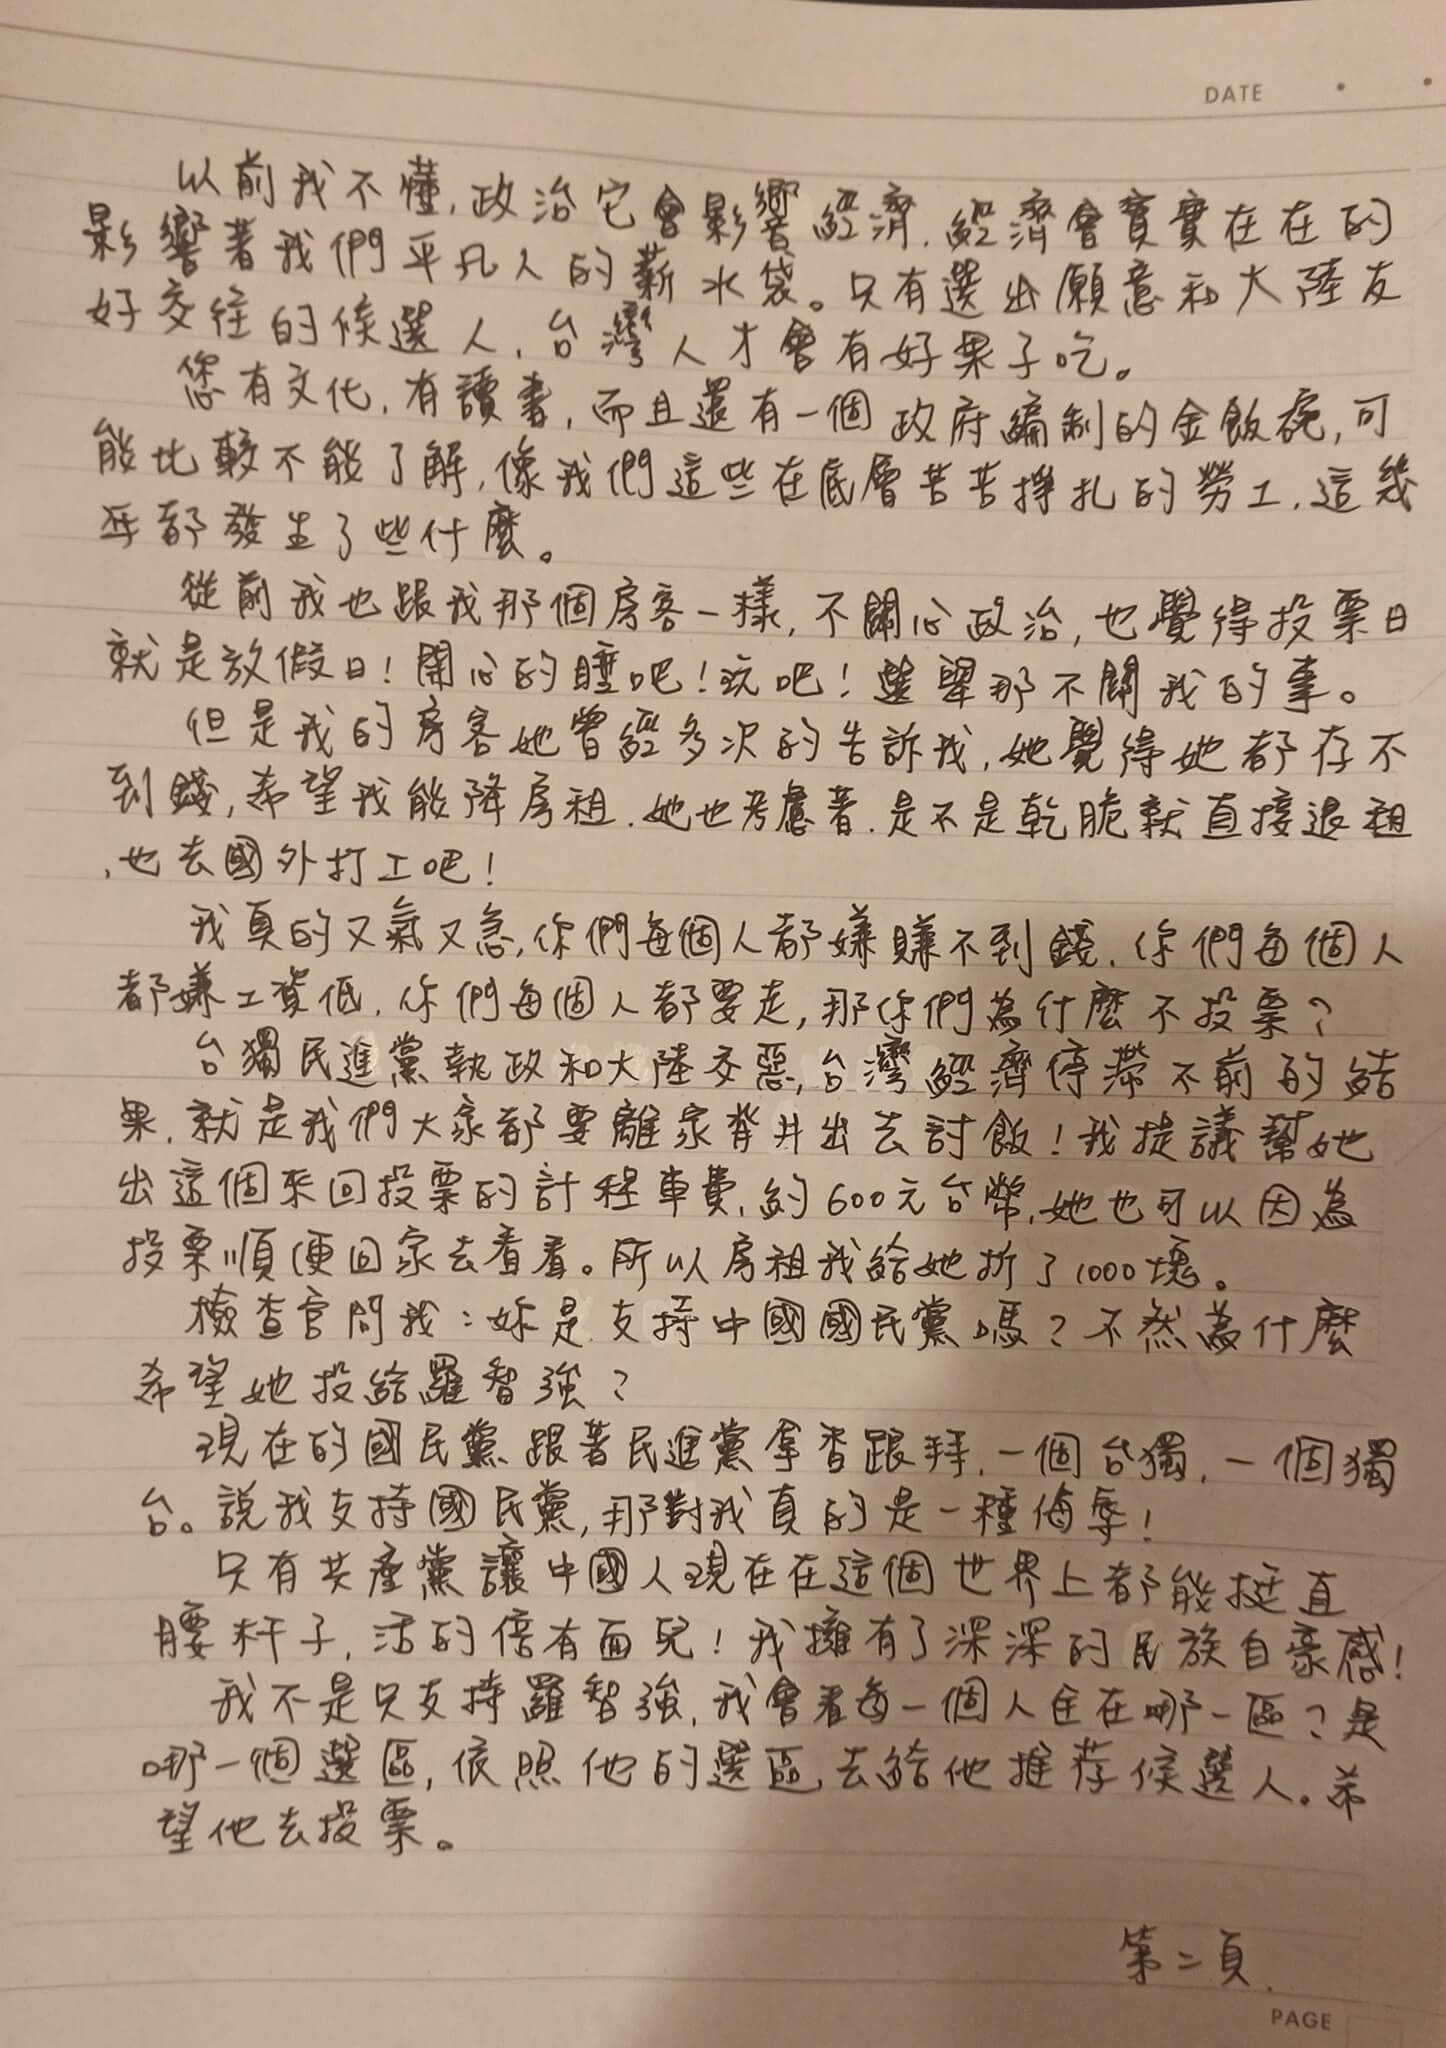 DATE
以前我不懂,政治它會影響經濟,經濟會實實在在的
影響著我們平凡人的薪水袋。只有選出願意和大陸友
好交往的候選人,台灣人才會有好果子吃。
您有文化,有讀書,而且還有一個政府編制的金飯碗,可
能比較不能了解,像我們這些在底層苦苦掙扎的勞工,這幾
年都發生了些什麼。
從前我也跟我那個房客一樣,不關心政治,也覺得投票日
就是放假日!開心的睡吧!玩吧!選舉那不關我的事。
但是我的房客她曾經多次的告訴我,她覺得她都存不
到錢,希望我能降房租.她也考慮著.是不是乾脆就直接退租
,也去國外打工吧!
我真的又氣又急,你們每個人都嫌賺不到錢.你們每個人
都嫌工資低.你們每個人都要走,那你們為什麼不投票?
台獨民進黨執政和大陸交惡,台灣經濟停滯不前的結
果.就是我們大家都要離家背井出去討飯!我提議幫她
出這個來回投票的計程車費,約600元台幣,她也可以因為
投票順便回家去看看。所以房租我給她折了1000塊。
檢查官問我:妳是支持中國國民黨嗎?不然為什麼
希望她投給羅智強?
現在的國民黨跟著民進黨拿香跟拜,一個台獨,一個獨
台。說我支持國民黨,那對我真的是一種侮辱!
只有共產黨讓中國人現在在這個世界上都能挺直
腰杆子,活的倍有面兒!我擁有了深深的民族自豪感!
我不是只支持羅智強,我會看每一個人住在哪一區?是
哪一個選區,依照他的選區,去給他推荐候選人。希
望他去投票。
第二頁.
PAGE